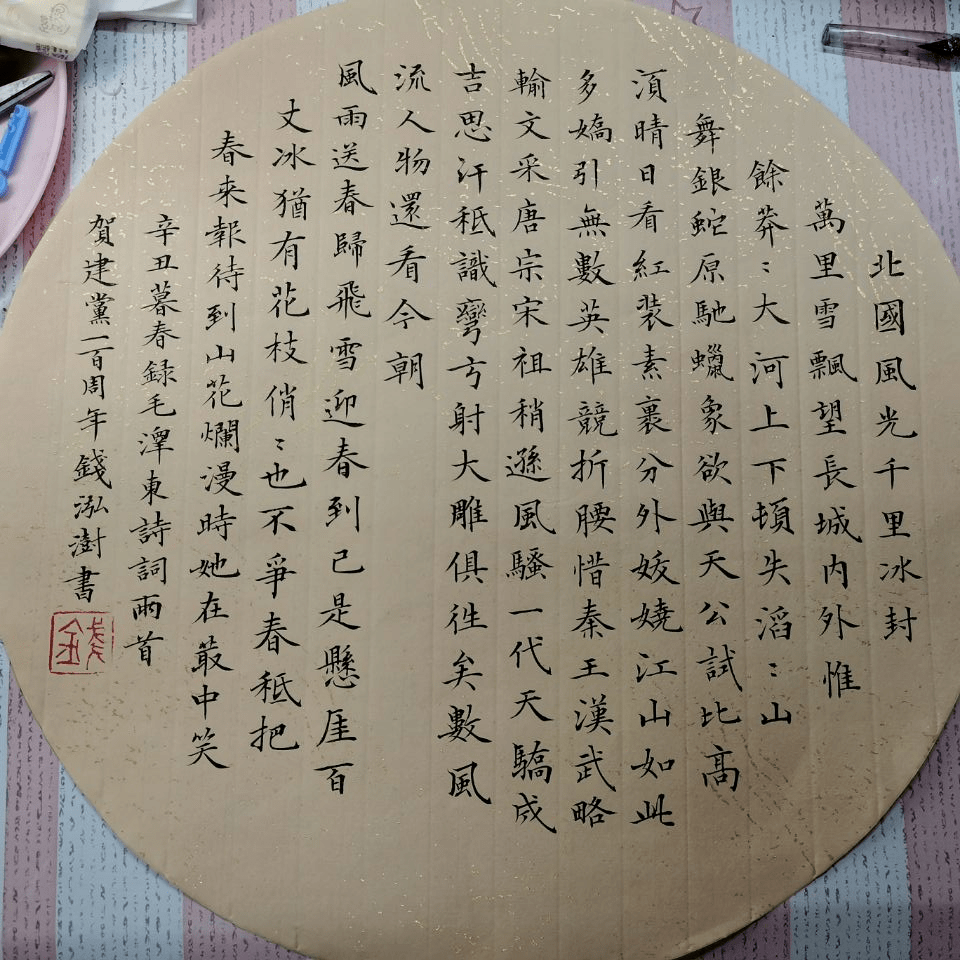 北國風光千里冰封
萬里雪飄望長城內外惟
餘莽〻大河上下頓失滔〻山
舞銀蛇原馳蠟象欲與天公試比高
須晴日看紅裝素裹分外妖嬈江山如此
多嬌引無數英雄競折腰惜秦王漢武略
輸文采唐宗宋祖稍遜風騷一代天驕成
吉思汗秖識彎弓射大雕俱往矣數風
流人物還看今朝
風雨送春歸飛雪迎春到已是懸厓百
丈冰猶有花枝俏〻也不爭春秖把
春來報待到山花爛漫時她在叢中笑
辛丑暮春録毛澤東詩詞兩首
賀建黨一百周年錢泓澍書
錢